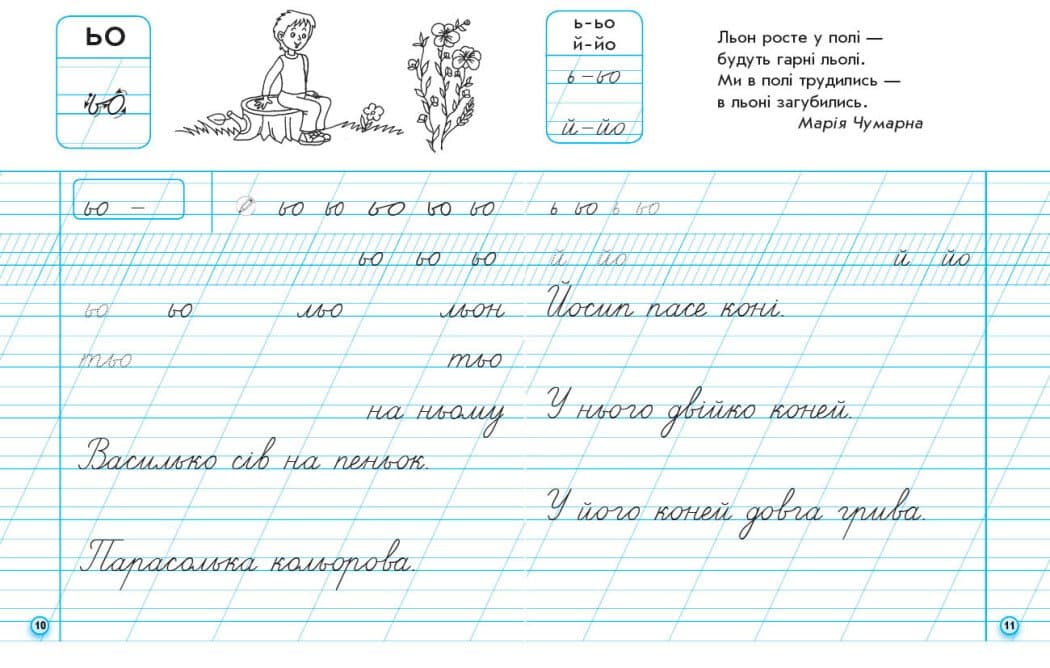 ьо
ьо
ьо –
ьо ьо ьо ьо ьо
ьо ьо ьо
ьо ьо льо льон
тьо тьо
на ньому
Василько сів на пеньок.
Парасолька кольорова.
10
ь-ьо
й-йо
ь – ьо
й – йо
Льон росте у полі —
будуть гарні льолі.
Ми в полі трудились —
в льоні загубились.
Марія Чумарна
ь ьо ь ьо
й йо й йо
Йосип пасе коні.
У нього двійко коней.
У його коней довга грива.
11